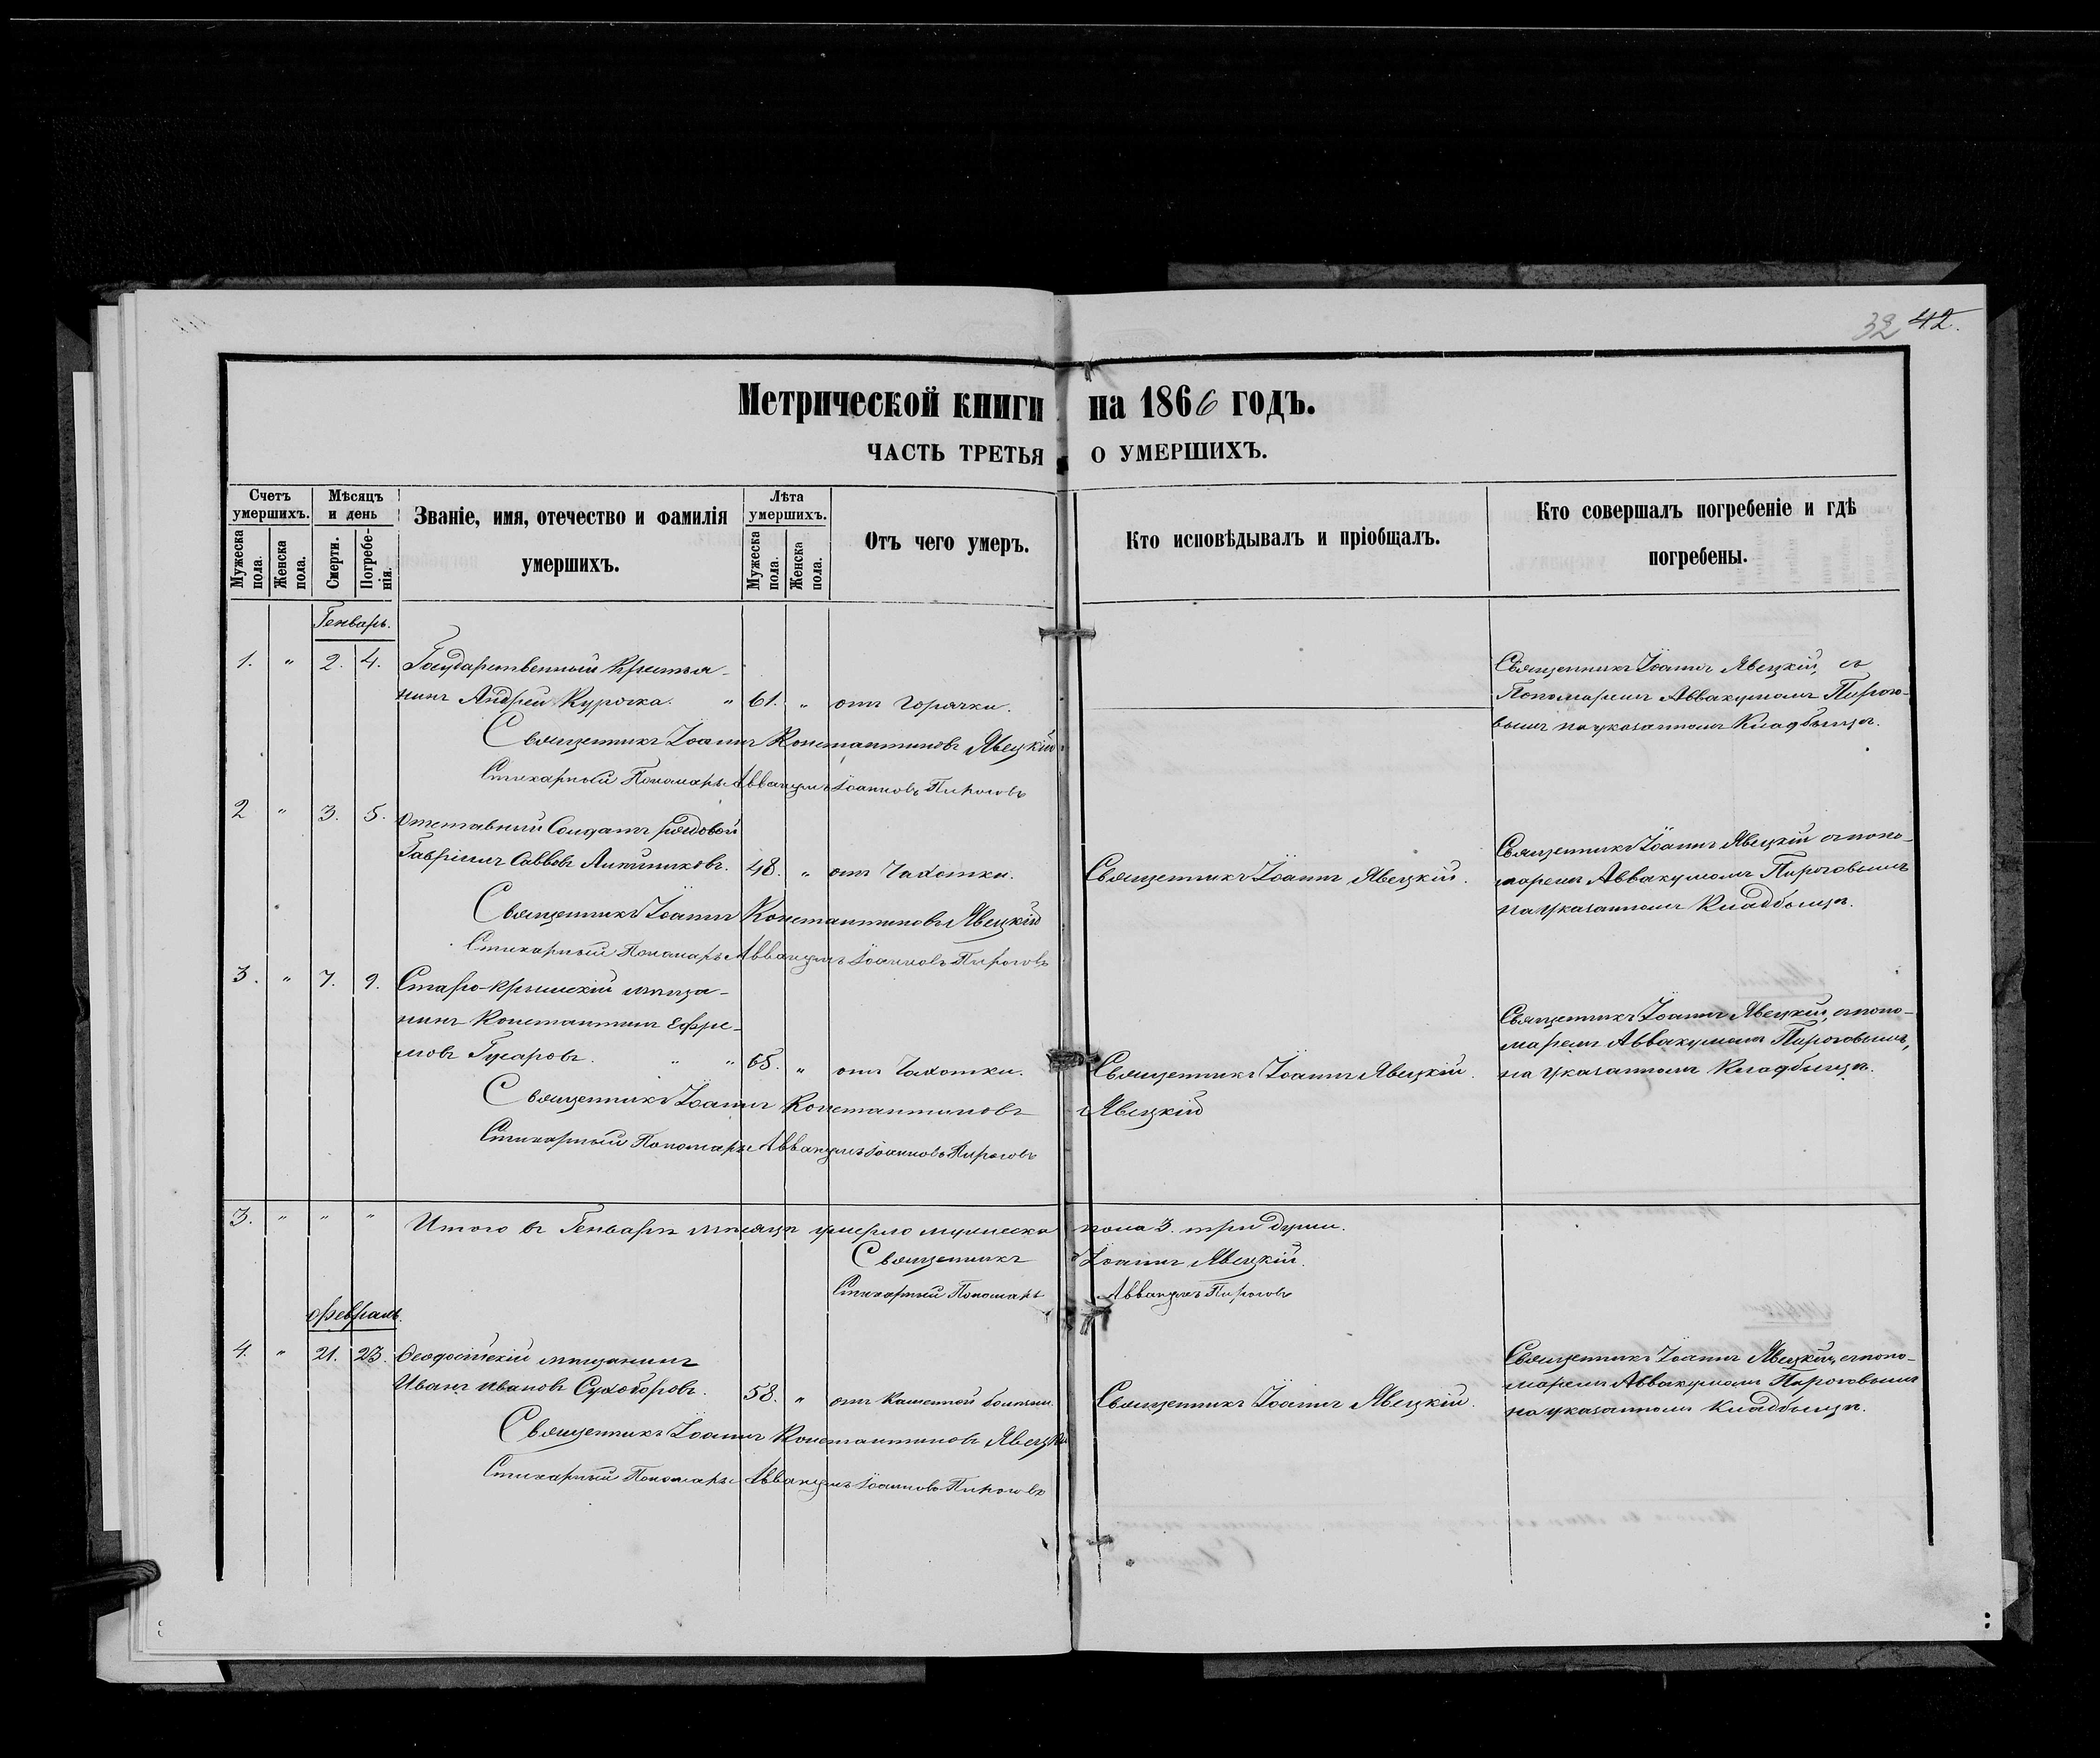 32 42.
Метрической книги на 1866 годъ.
ЧАСТЬ ТРЕТЬЯ О УМЕРШИХЪ.
Счетъ умершихъ.
Мужеска пола.
Женска пола.
Мѣсяцъ и день
Смерти.
Погребенія.
Званіе, имя, отечество и фамилія умершихъ.
Лѣта умершихъ.
Мужеска пола.
Женска пола.
Отъ чего умеръ.
Кто исповѣдывалъ и пріобщалъ.
Кто совершалъ погребеніе и гдѣ погребены.
Генварь.
1. " 2. 4. Государственный Крестья-
нинъ Андрей Курочка. " 61. " отъ горячки.
Священникъ Іоаннъ Явецкій, съ
Пономаремъ Аввакумомъ Пирого-
вымъ на указанномъ Кладбищѣ.
Священникъ Іоаннъ Константиновъ Явецкій
Стихарный Пономарь Аввакумъ Іоанновъ Пироговъ
2 " 3. 5. Отставный Солдатъ рядовой
Гавріилъ Саввовъ 48. " отъ Чахотки. Священникъ Іоаннъ Явецкій.
Священникъ Іоаннъ Явецкій съ поно-
маремъ Аввакумомъ Пироговымъ
на указанномъ Кладбищѣ.
Священникъ Іоаннъ Константиновъ Явецкій
Стихарный Пономарь Аввакумъ Іоанновъ Пироговъ
3. " 7. 9. Старо-Крымскій мѣща-
нинъ Константинъ Ефре-
мовъ Гусаровъ. " " 65. " отъ Чахотки. Священникъ Іоаннъ Явецкій.
Священникъ Іоаннъ Явецкій, съ поно-
маремъ Аввакумомъ Пироговымъ,
на указанномъ Кладбищѣ.
Священникъ Іоаннъ Константиновъ Явецкій
Стихарный Пономарь Аввакумъ Іоанновъ Пироговъ
3. " " " Итого въ Генварѣ мѣсяцѣ умерло мужеска пола 3. три души.
Священникъ Іоаннъ Явецкій.
Стихарный Пономарь Аввакумъ Пироговъ
Февраль.
4. " 21. 23. Ѳеодосійскій мѣщанинъ
Иванъ Ивановъ Сухоборовъ. 58. " отъ Каменной болѣзни. Священникъ Іоаннъ Явецкій.
Священникъ Іоаннъ Явецкій, съ поно-
маремъ Аввакумомъ Пироговымъ
на указанномъ Кладбищѣ.
Священникъ Іоаннъ Константиновъ Явецкій
Стихарный Пономарь Аввакумъ Іоанновъ Пироговъ